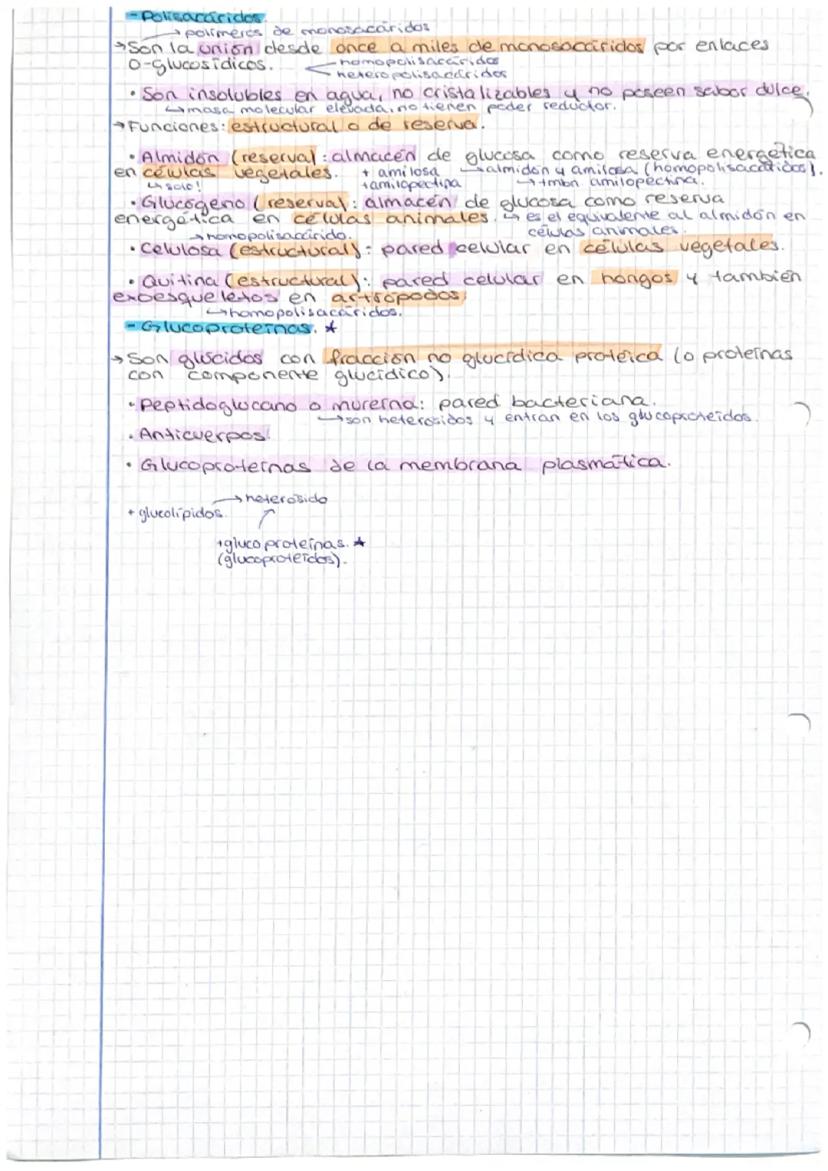 - Polisacáridos.
→ polímeros de monosacáridos
→ Son la unión desde once a miles de monosacáridos por enlaces
O-glucosídicos. homopolisacáridos
heteropolisacáridos
• Son insolubles en agua, no cristalizables y no poseen sabor dulce.
↳ masa molecular elevada, no tienen poder reductor.
→ Funciones: estructural o de reserva.
• Almidón (reserva): almacén de glucosa como reserva energética
en células vegetales. + amilosa → almidón y amilosa (homopolisacáridos).
↳ solo! + amilopectina → tmbn amilopectina.
• Glucógeno (reserva): almacén de glucosa como reserva
energética en células animales. ↳ es el equivalente al almidón en
→ homopolisacárido. células animales.
• Celulosa (estructural): pared celular en células vegetales.
• Quitina (estructural): pared celular en hongos y también
exoesqueletos en artrópodos
↳ homopolisacáridos.
- Glucoproteínas. ★
→ Son glúcidos con fracción no glucídica proteica (o proteínas
con componente glucídico).
• Peptidoglucano o mureína: pared bacteriana.
→ son heterósidos y entran en los glucoproteidos.
• Anticuerpos
• Glucoproteínas de la membrana plasmática.
→ heterósido
+ glucolípidos.
+ glucoproteínas. ★
(glucoproteidos).